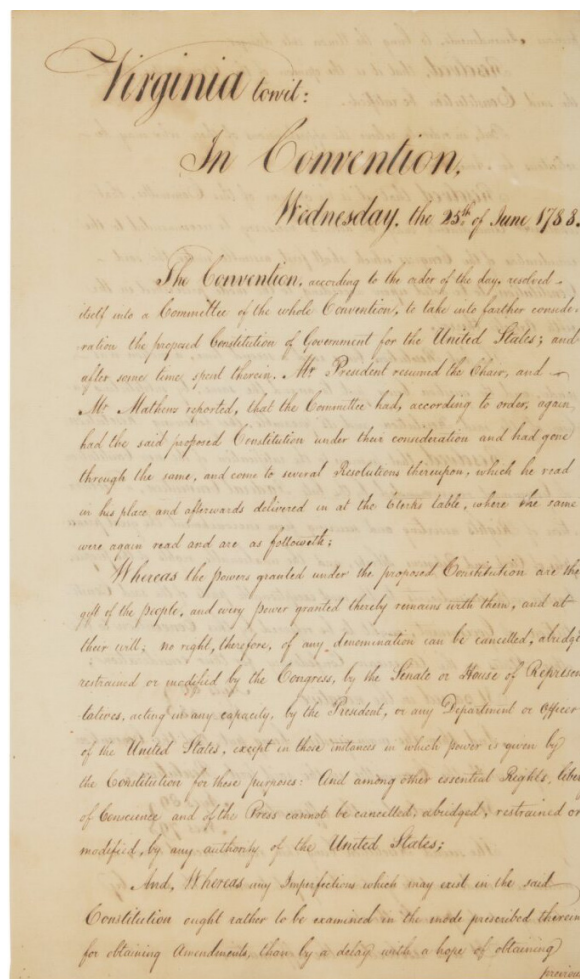 Virginia towit:
In Convention,
Wednesday, the 25th of June 1788.
The Convention, according to the order of the day, resolved
itself into a Committee of the whole Convention, to take into farther conside-
ration the proposed Constitution of Government for the United States; and
after some time spent therein, Mr President resumed the Chair, and
Mr Mathews reported, that the Committee had, according to order, again
had the said proposed Constitution under their consideration and had gone
through the same, and come to several Resolutions thereupon, which he read
in his place and afterwards delivered in at the Clerks table, where the same
were again read and are as followeth;
Whereas the powers granted under the proposed Constitution are the
gift of the people, and every power granted thereby remains with them, and at
their will; no right, therefore, of any denomination can be cancelled, abridg
restrained or modified by the Congress, by the Senate or House of Represen
tatives, acting in any capacity, by the President, or any Department or Officer
of the United States, except in those instances in which power is given by
the Constitution for those purposes: And among other essential Rights, liber
of Conscience and of the Press cannot be cancelled, abridged, restrained or
modified, by any authority of the United States;
And, Whereas any Imperfections which may exist in the said
Constitution ought rather to be examined in the mode prescribed therein
for obtaining Amendments, than by a delay with a hope of obtaining
previou